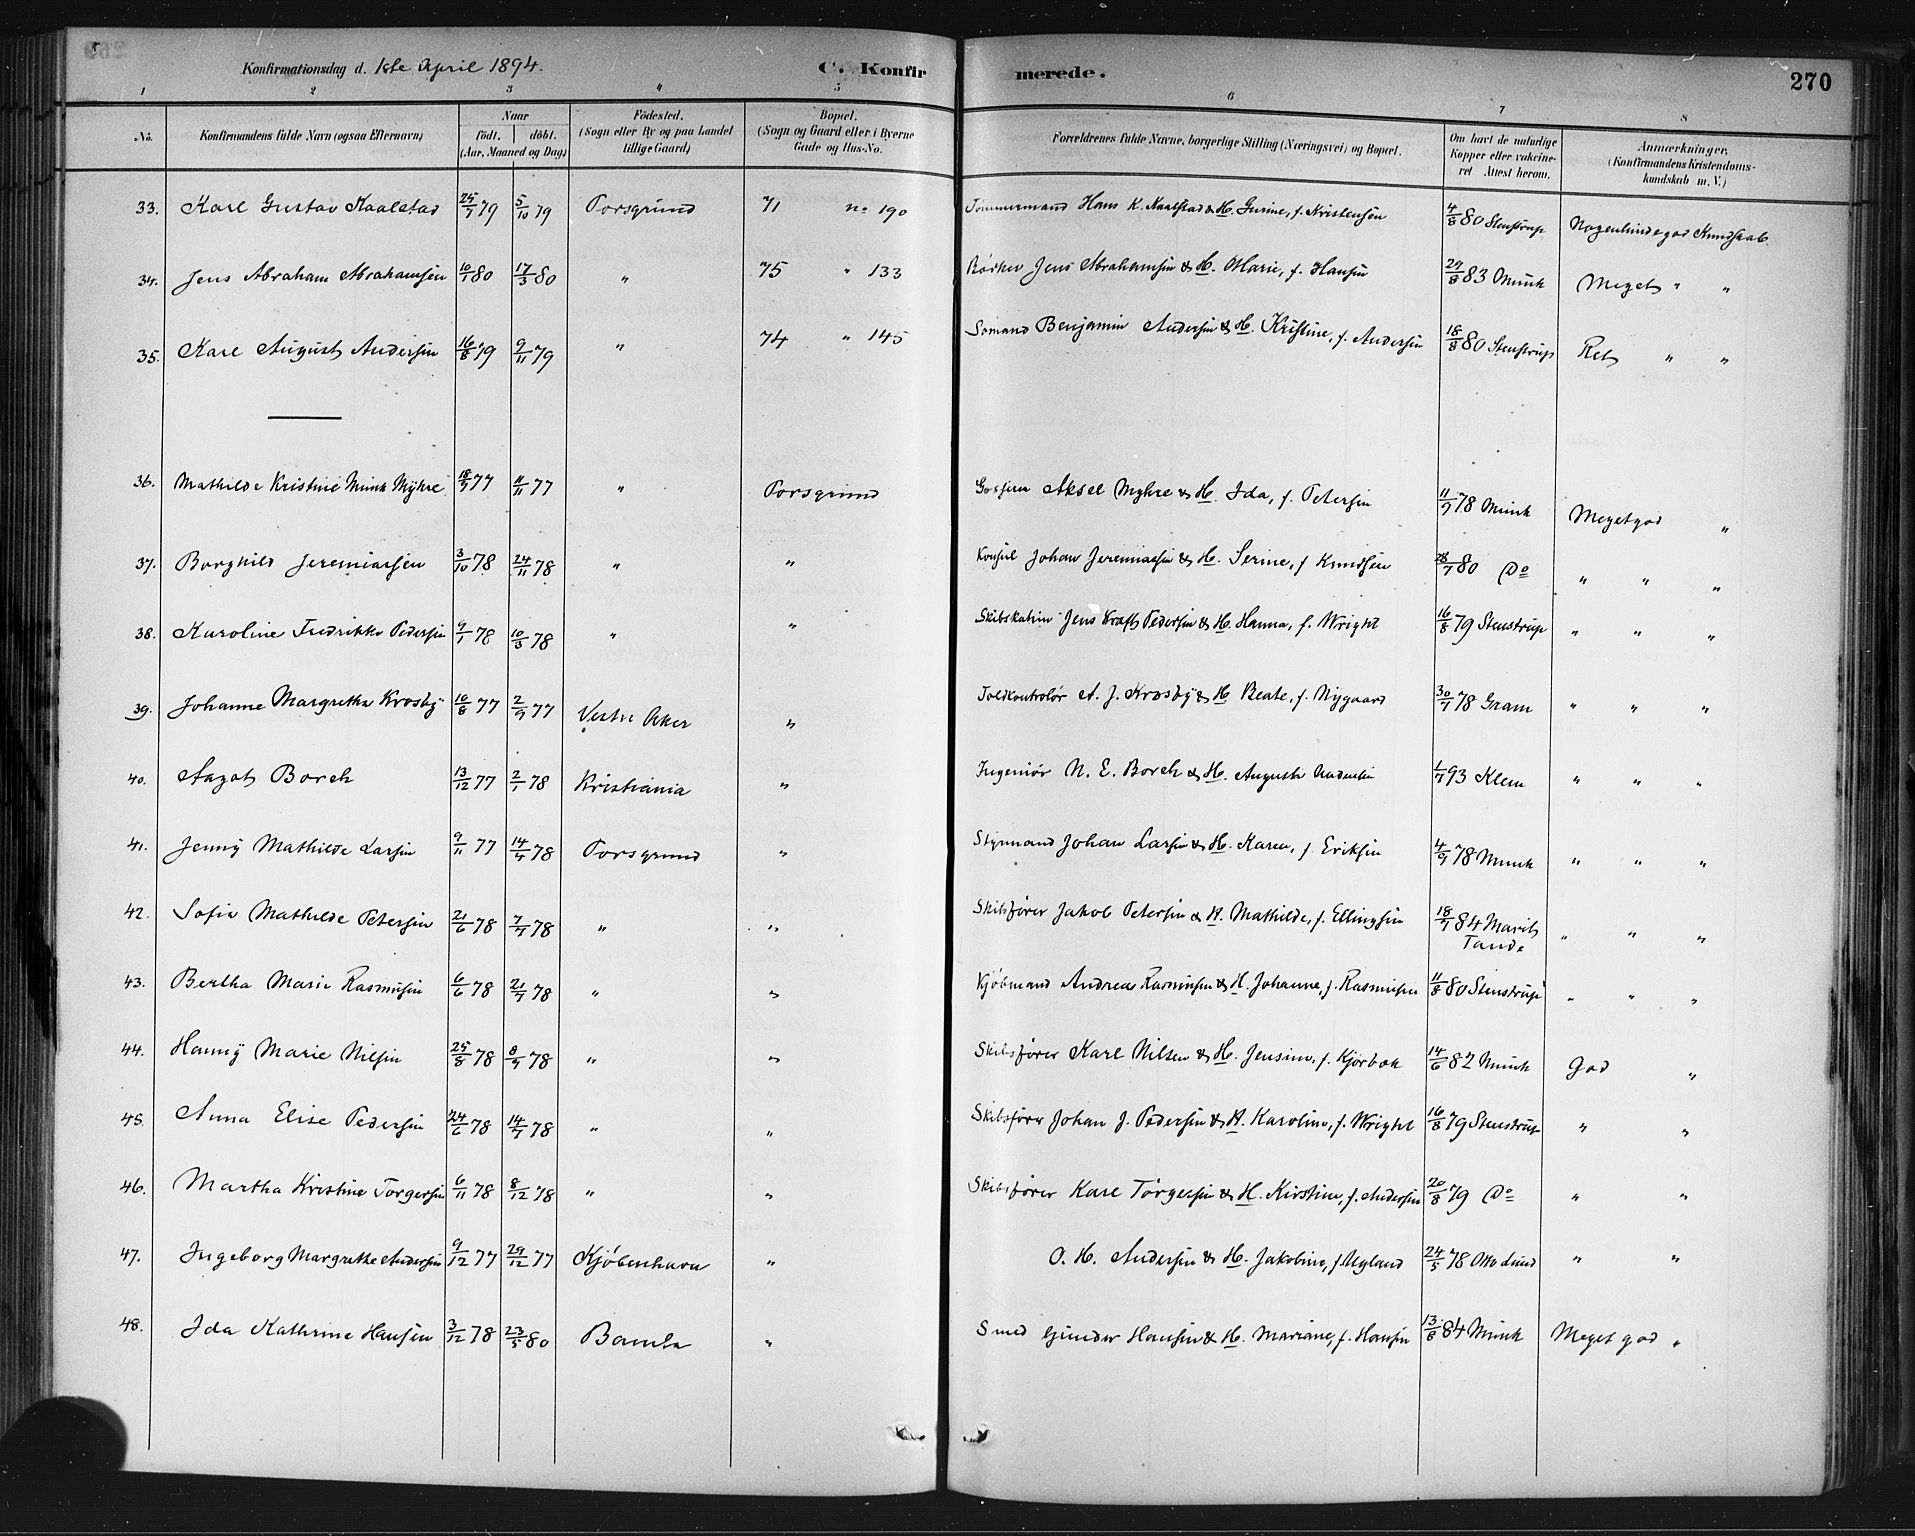 Konfirmationsdag d. 1ste April 1894. C. Konfirmerede. 270
1 2 3 4 5 6 7 8
No. Konfirmandens fulde Navn (ogsaa Efternavn) Naar født. døbt. (Aar, Maaned og Dag) Fødested. (Sogn eller By og paa Landet tillige Gaard) Bopæl. (Sogn og Gaard eller i Byerne Gade og Hus-No. Forældrenes fulde Navne, borgerlige Stilling (Næringsvei) og Bopæl. Om havt de naturlige Kopper eller vakcineret Attest herom. Anmerkninger. (Konfirmandens Kristendomskundskab m. V.)
33. Karl Gustav Kaalstad 25/7 79 5/10 79 Porsgrund 71 no 190 Tømmermand Hans K. Kaalstad & H. Gurine, f. Kristensen 4/8 80 Stenstrup Nogenlunde god Kundskab.
34. Jens Abraham Abrahamsen 10/1 80 17/3 80 " 75 " 133 Bødker Jens Abrahamsen & H. Marie, f. Hansen 29/8 83 Munk Meget " "
35. Karl August Andersen 16/8 79 9/11 79 " 74 " 145 Sømand Benjamin Andersen & H. Kristine, f. Andersen 18/8 80 Stenstrup Ret " "
36. Mathilde Kristine Munk Myhre 18/7 77 11/11 77 " Porsgrund Aksel Myhre & H. Ida, f. Petersen 11/9 78 Munk Meget god "
37. Borghild Jeremiassen 3/10 78 24/11 78 " " Konsul Johan Jeremiassen & H. Serine, f Knudsen 28/7 80 Do " " "
38. Karoline Fredrikke Pedersen 9/1 78 10/3 78 " " Jens Craft Pedersen & H. Hanna, f. Wright 16/8 79 Stenstrup " " "
39. Johanne Margrethe Krosby 10/8 77 2/9 77 Vestre Aker " Toldkontrolør A. J. Krosby & H Beate, f. Nygaard 30/7 78 Gram " " "
40. Aagot Borch 13/12 77 2/1 78 Kristiania " Ingeniør N. E. Borch & H. Augusta 1/7 93 Klem " " "
41. Jenny Mathilde Larsen 9/11 77 14/4 78 Porsgrund " Styrmand Johan Larsen & H. Karen, f. Eriksen 4/9 78 Munk " " "
42. Sofie Mathilde Petersen 21/6 78 7/7 78 " " Skibsfører Jakob Petersen & H. Mathilde, f. Ellingsen 18/7 84 Marit Tande " " "
43. Bertha Marie Rasmusen 6/6 78 21/7 78 " " Kjøbmand Andreas Rasmusen & H. Johanne, f. Rasmusen 11/8 80 Stenstrup " " "
44. Hanny Marie Nilsen 25/8 78 8/9 78 " " Skibsfører Karl Nilsen & H. Jensine, f. Kjørbæk 14/6 82 Munk God "
45. Anna Elise Pedersen 24/6 78 14/7 78 " " Skibsfører Johan J. Pedersen & H. Karoline, f. Wright 16/8 79 Stenstrup " "
46. Martha Kristine Torgersen 6/11 78 8/12 78 " " Skibsfører Karl Törgersen & H. Kirstine, f. Andersen 20/8 79 Do " "
47. Ingeborg Margrethe Andersen 9/12 77 29/12 77 Kjøbenhavn " O. H. Andersen & H. Jakobine, f Nyland 24/5 78 Otto Lund " "
48. Ida Kathrine Hansen 3/12 78 23/5 80 Bamle " Smed Gunder Hansen & H. Mariane, f. Hansen 13/8 84 Munk Meget god "